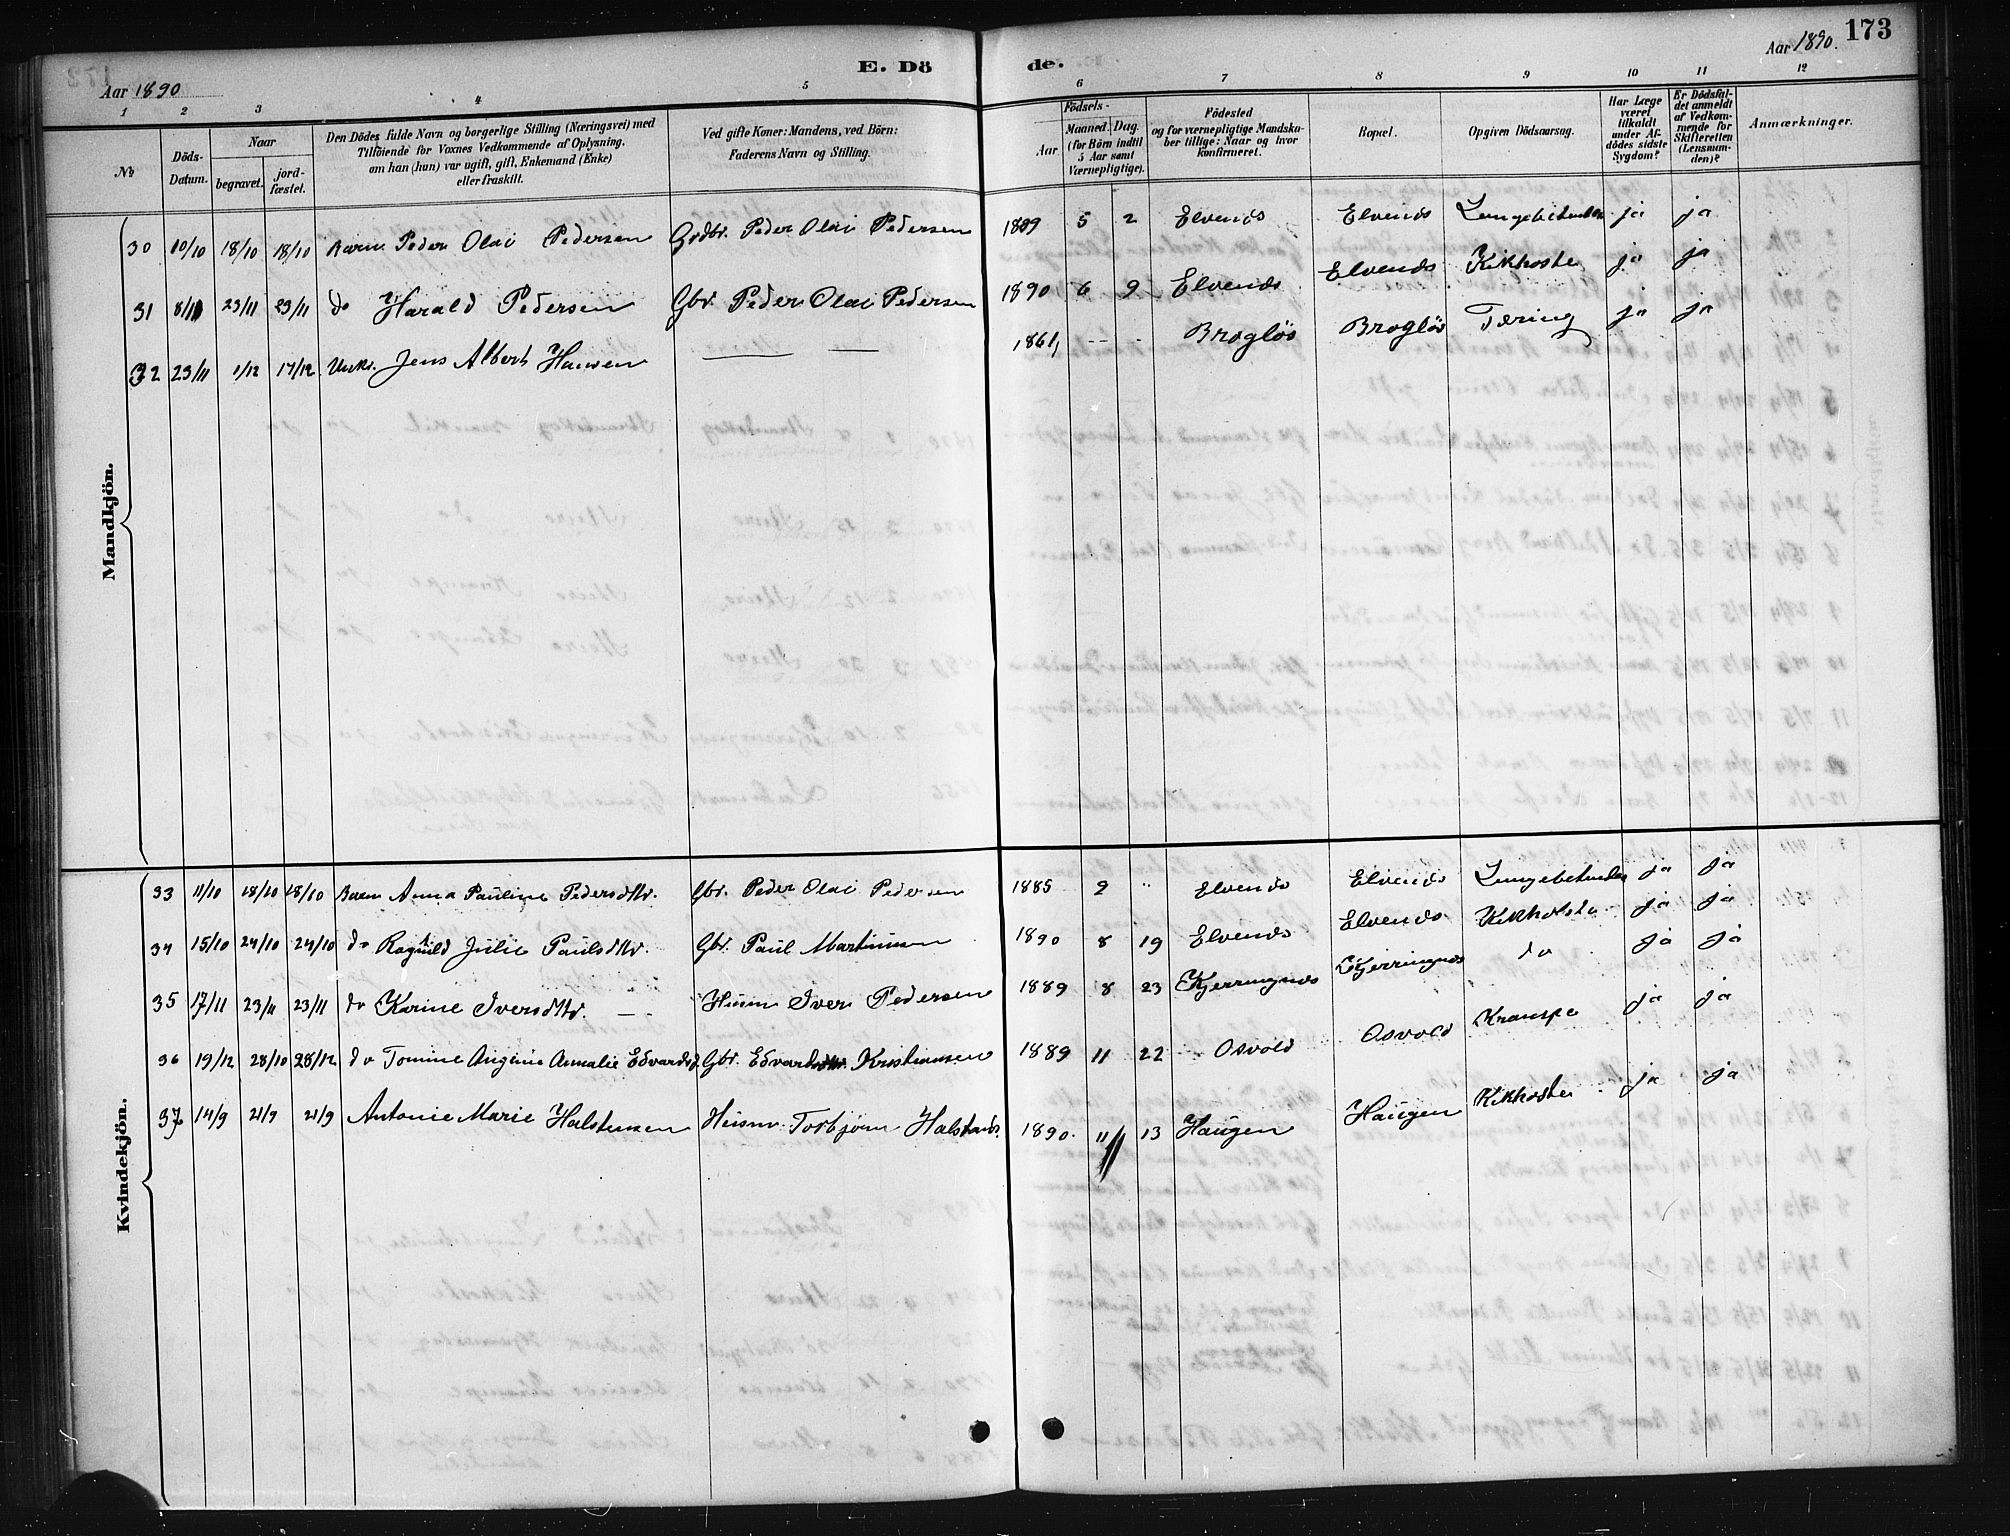 173
Aar 1890
E. Dö
de.
Aar 1890.
1 2 3 4 5 6 7 8 9 10 11 12
No
Döds-Datum.
Naar
begravet. jordfæstet.
Den Dödes fulde Navn og borgerlige Stilling (Næringsvei) med Tilföiende for Voxnes Vedkommende af Oplysning, om han (hun) var ugift, gift, Enkemand (Enke) eller fraskilt.
Ved gifte Koner: Mandens, ved Börn: Faderens Navn og Stilling.
Födsels-
Aar. Maaned. Dag.
(for Börn indtil 5 Aar samt Værnepligtige).
Födested og for værnepligtige Mandskaber tillige: Naar og hvor konfirmeret.
Bopæl.
Opgiven Dödsaarsag.
Har Læge været tilkaldt under Afdödes sidste Sygdom?
Er Dödsfaldet anmeldt af Vedkommende for Skifteretten (Lensmanden)?
Anmærkninger.
Mandkjön.
30 10/10 18/10 18/10 Barn Peder Olai Pedersen Grdbr. Peder Olai Pedersen 1889 5 2 Elvenes Elvenes Lungebetendse ja ja
31 8/11 23/11 23/11 do Harald Pedersen Gbr. Peder Olai Pedersen 1890 6 9 Elvenes Elvenes Kikhoste ja ja
32 23/11 1/12 17/12 Unkr. Jens Albert Hansen — — 1861 - - Brogløs Brogløs Tæring ja ja
Kvindekjön.
33 11/10 18/10 18/10 Barn Anna Pauline Pedersdtr. Gbr. Peder Olai Pedersen 1885 2 " Elvenes Elvenes Lungebetendse ja ja
34 15/10 24/10 24/10 do Ragnild Julie Paulsdtr. Gbr. Paul Martinusen 1890 8 19 Elvenes Elvenes Kikhoste ja ja
35 17/11 23/11 23/11 do Karine Iversdtr. Husm Iver Pedersen 1889 8 23 Kjerringnes Kjerringnes do ja ja
36 19/12 28/10 28/12 do Tomine Angine Annalie Edvardsd. Gbr. Edvard Kristiansen 1889 11 22 Osvold Osvold Krampe ja ja
37 14/9 21/9 21/9 Antonie Marie Halstensen Husm. Torbjørn Halstends. 1890. 11 13 Haugen Haugen Kikhoste ja ja